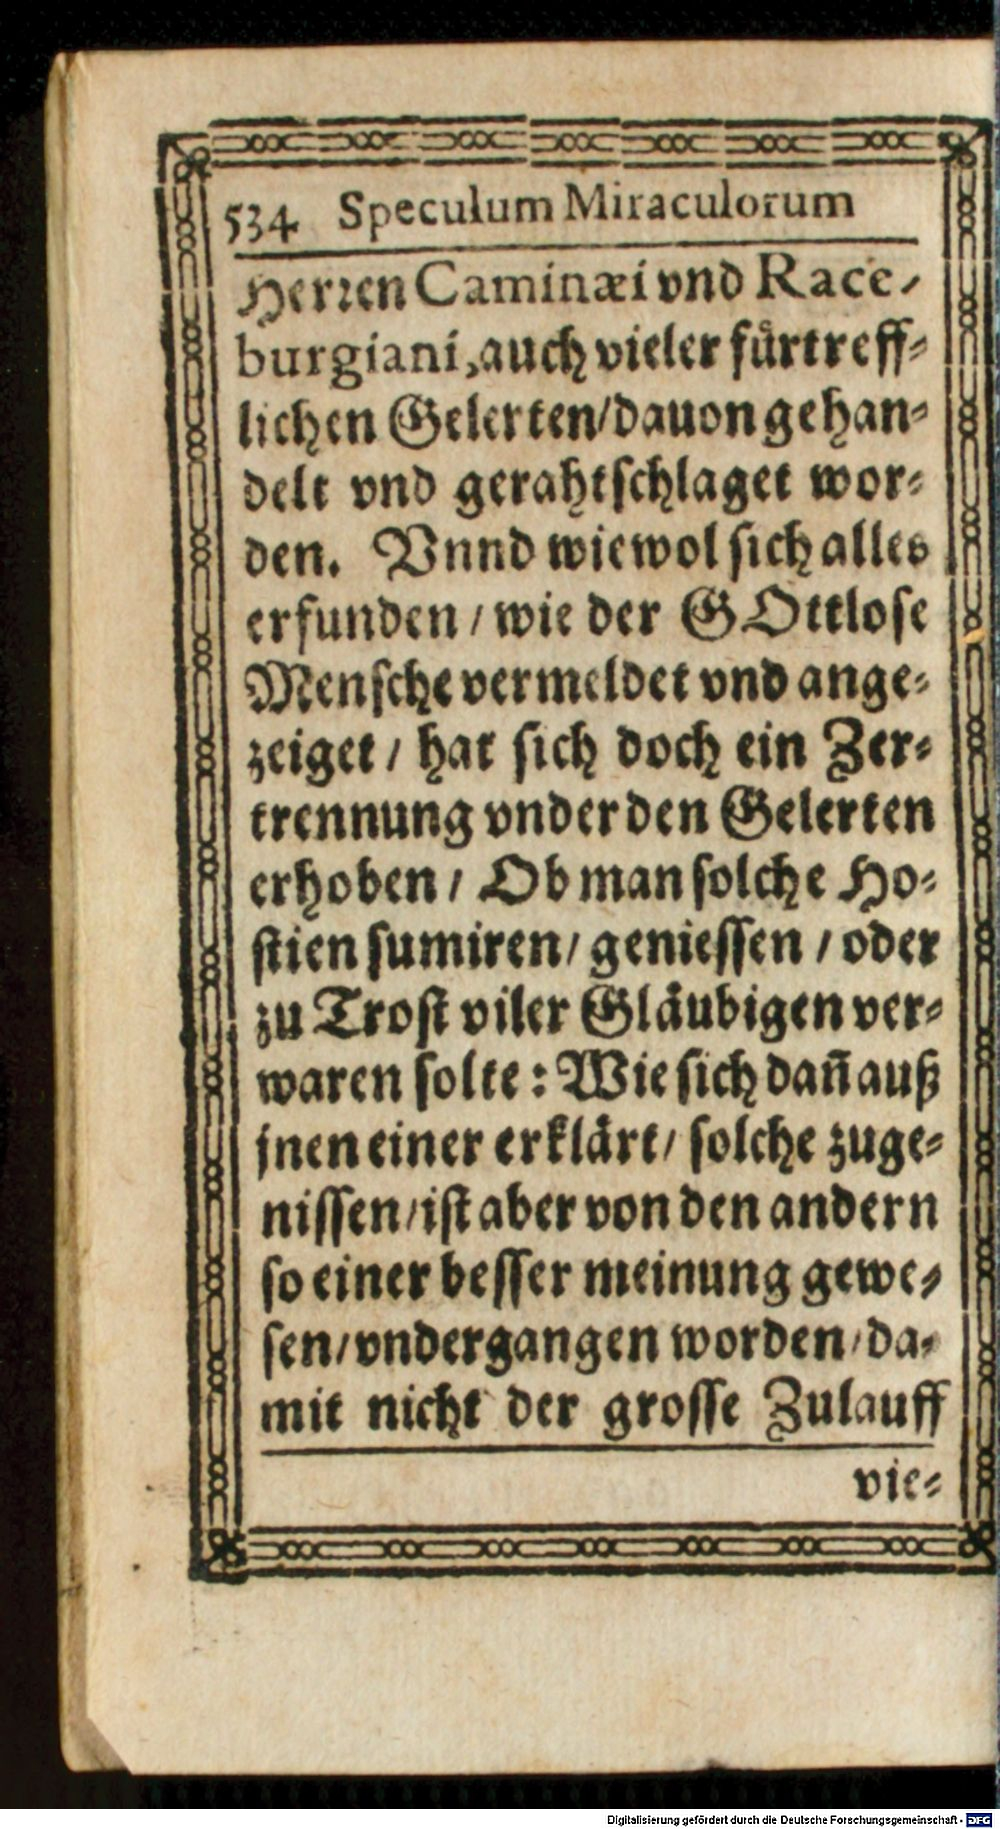 534 Speculum Miraculorum
Herren Caminæi vnd Race-
burgiani, auch vieler fürtreff-
lichen Gelerten/dauon gehan-
delt vnd gerahtschlaget wor-
den. Vnnd wiewol sich alles
erfunden / wie der GOttlose
Mensche vermeldet vnd ange-
zeiget / hat sich doch ein Zer-
trennung vnder den Gelerten
erhoben / Ob man solche Ho-
stien sumiren/ geniessen / oder
zu Trost viler Gläubigen ver-
waren solte: Wie sich dañ auß
jnen einer erklärt/ solche zuge-
nissen/ist aber von den andern
so einer besser meinung gewe-
sen/vndergangen worden/da-
mit nicht der grosse Zulauff
vie-
Digitalisierung gefördert durch die Deutsche Forschungsgemeinschaft - DFG